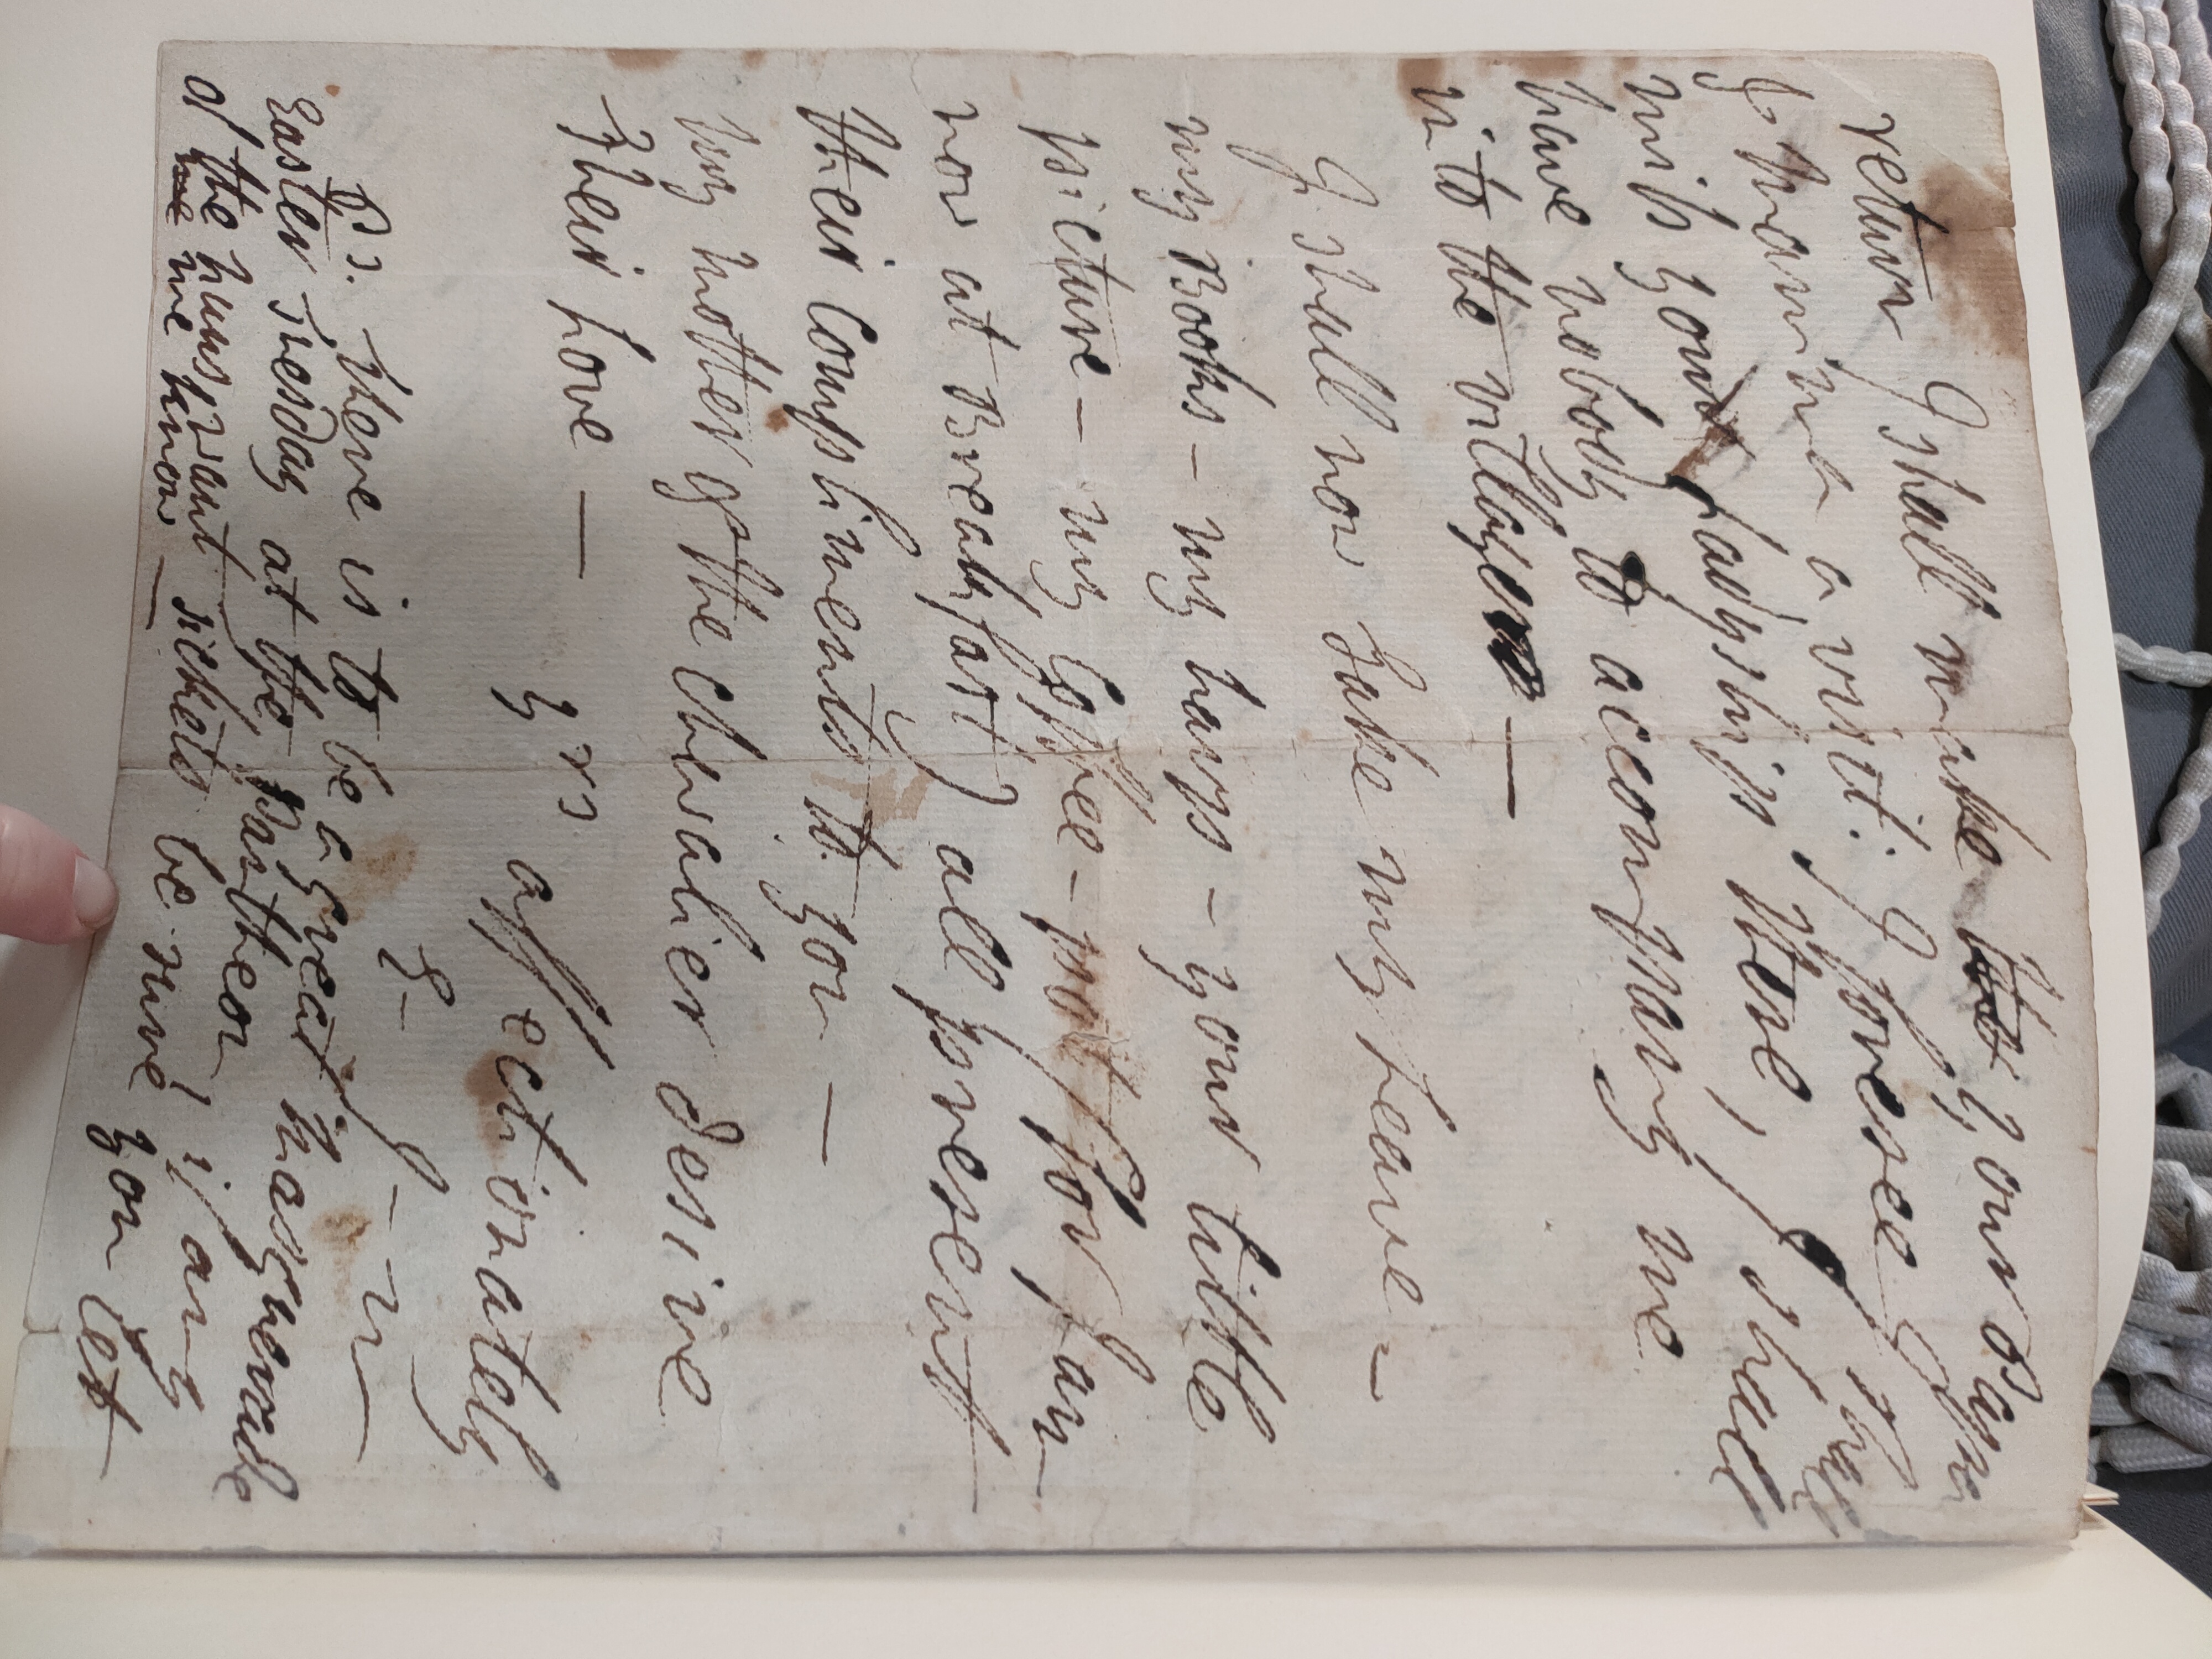 return I shall make your Daughr
a visit. I foresee I shall
miss your Ladyship there, I shall
have nobody to accompany me
into the village —
I shall now take my Leave —
my Books — my — your little
picture — my Coffee-pot (for I am
now at Breakfast) all present
their Compliments to you —
my Mother & the Chevalier desire
their Love —
yrs affectionately
P.s. there is to be a great Masquerade
Easter Tuesday at the Pantheon if any
of the nuns want Tickets be sure! you let
me me know —